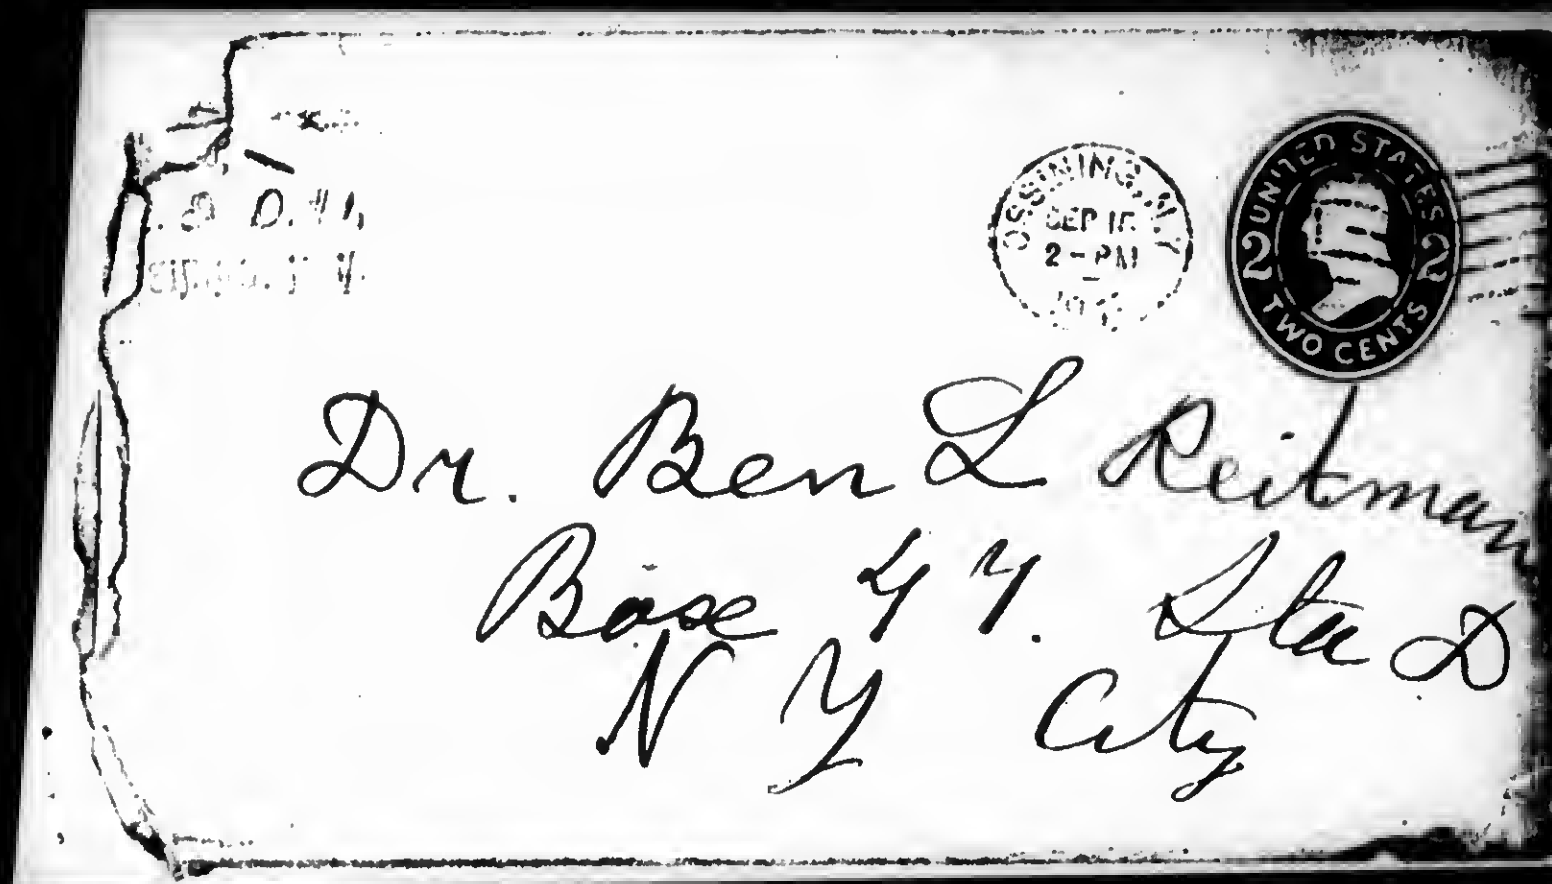 OSSINING, N.Y
SEP
2 - PM
UNITED STATES
2 2
TWO CENTS
Dr. Ben L Reitman
Box 47. Sta D
N Y City